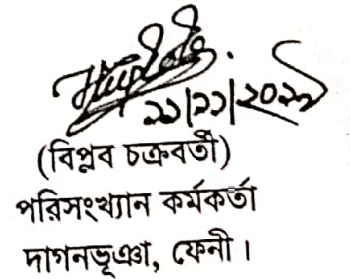 ১১/১১/২০২১
(বিপ্লব চক্রবর্তী)
পরিসংখ্যান কর্মকর্তা
দাগনভূঞা, ফেনী।